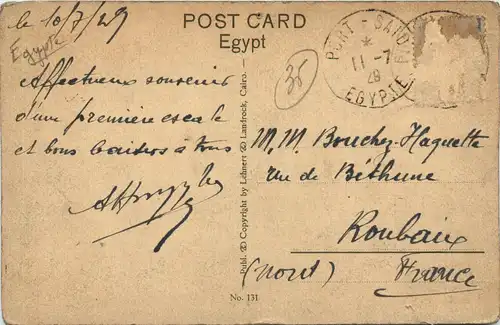 le 10/7/29
Egypte
POST CARD
Egypt
35
PORT-SAID
11 -7
EGYPTE
Affectueux souvenir
d'une première escale
et bons baisers à tous
Publ. & Copyright by Lehnert & Landrock, Cairo.
M.M. Bouchez-Haquette
rue de Béthune
Roubaix
(Nord) France
No. 131